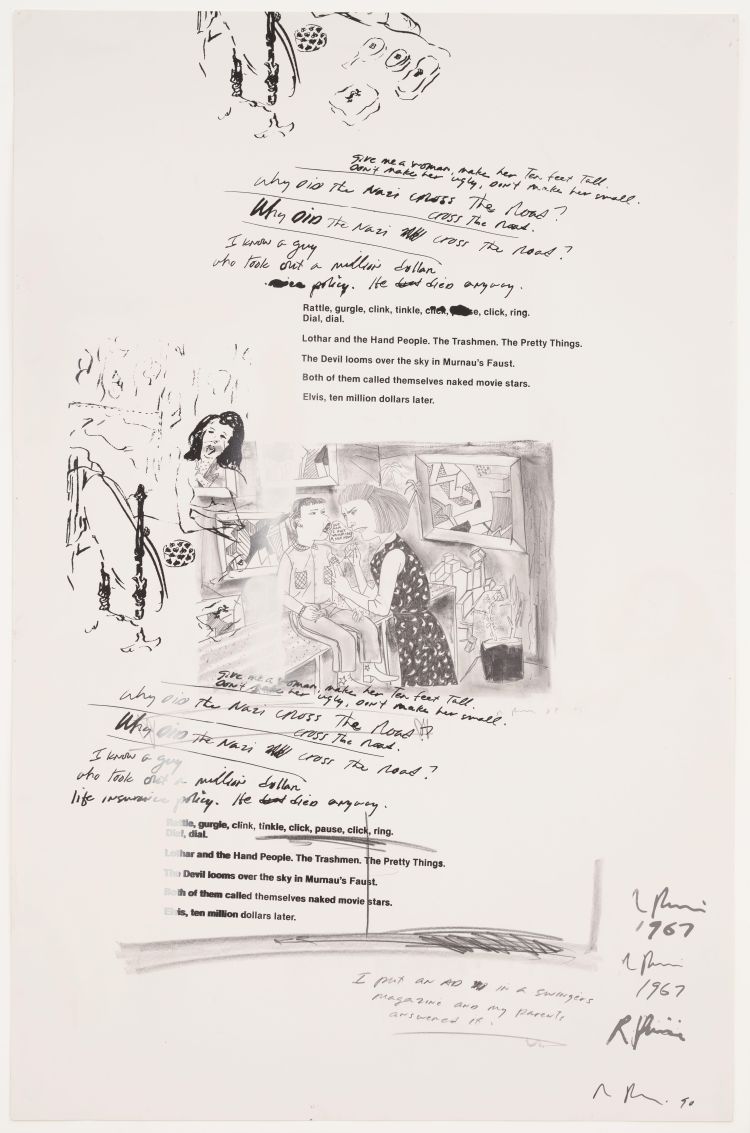 Give me a woman, make her Ten feet Tall.
Don't make her ugly, Don't make her small.
Why DiD the Nazi cross The Road?
cross The Road.
Why DiD the Nazi cross The Road?
I know a guy
who took out a million dollar
policy. He died anyway.
Rattle, gurgle, clink, tinkle, click, click, ring.
Dial, dial.
Lothar and the Hand People. The Trashmen. The Pretty Things.
The Devil looms over the sky in Murnau's Faust.
Both of them called themselves naked movie stars.
Elvis, ten million dollars later.
Give me a woman, make her Ten feet Tall.
Don't make her ugly, Don't make her small.
Why DiD the Nazi cross The Road
cross The Road.
Why DiD the Nazi cross The Road?
I know a guy
who took out a million dollar
life insurance policy. He died anyway.
Rattle, gurgle, clink, tinkle, click, pause, click, ring.
Dial, dial.
Lothar and the Hand People. The Trashmen. The Pretty Things.
The Devil looms over the sky in Murnau's Faust.
Both of them called themselves naked movie stars.
Elvis, ten million dollars later.
1967
1967
I put an AD in a swingers
magazine and my parents
answered it.
90